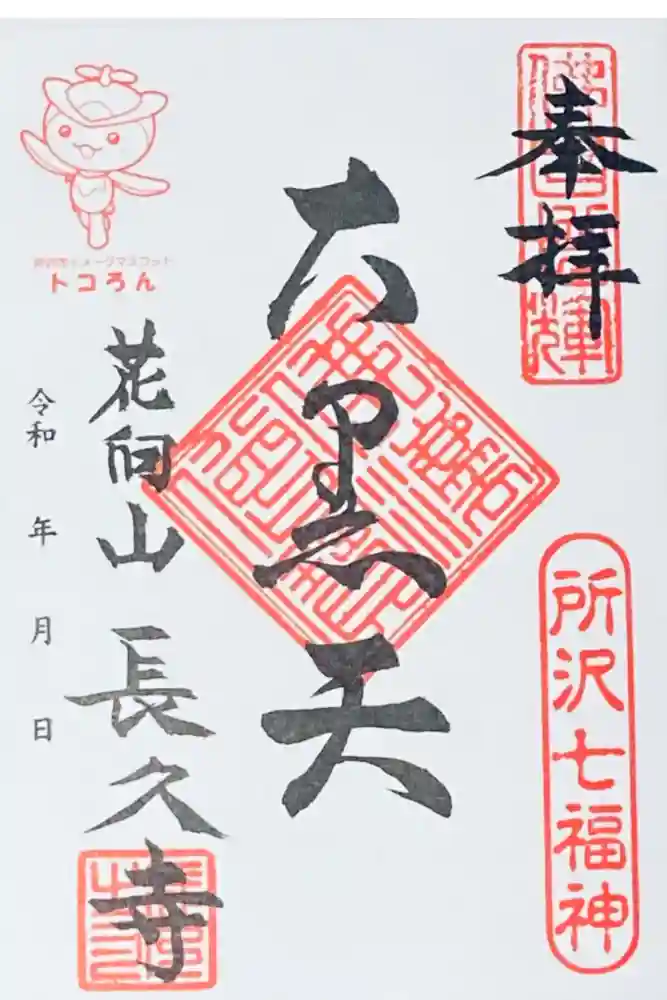 奉拝
所沢七福神
大黒天
花向山 長久寺
令和 年 月 日
所沢市イメージマスコット
トコろん